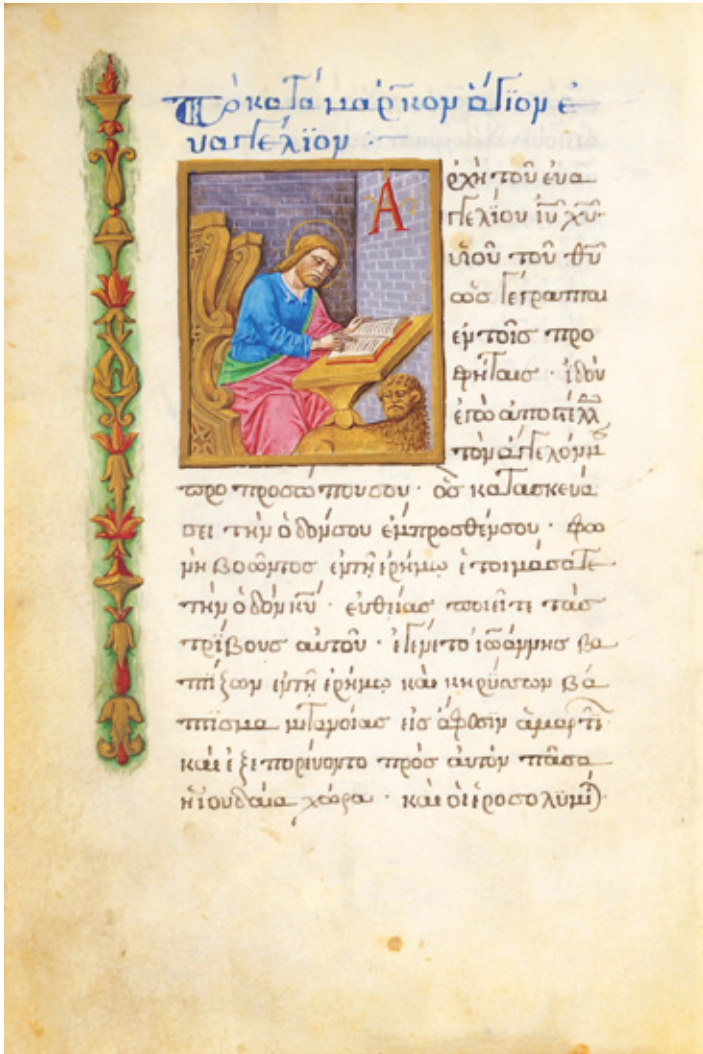 Τὸ κατὰ μάρκον ἅγϊον ἐ
υαγγέλϊον ·
Α
ρχὴ τοῦ ἐυα
γγελίου ἰῦ χῦ ·
ὑιοῦ τοῦ θῦ
ὡς γέγραπται
ἐν τοῖς προ
φήταις · ἰδοὺ
ἐγὼ ἀποστέλλ
τὸν ἄγγελόν μ
πρὸ προσώπου σου · ὃς κατασκευά
σει τὴν ὁδόν σου ἔμπροσθέν σου · φω
νὴ βοῶντος ἐν τῇ ἐρήμῳ ἑτοιμάσατε
τὴν ὁδὸν κῦ · ἐυθείας ποιεῖτε τὰς
τρίβους αυτοῦ · ἐγένετο ἰωάννης βα
πτίζων ἐν τῇ ἐρήμῳ καὶ κηρύσσων βά
πτισμα μετανοίας εἰς ἄφεσιν ἁμαρτι
καὶ ἐξεπορέυοντο πρὸς ἀυτὸν πᾶσα
ἡ ἰουδαία χώρα · καὶ οἱ ἱεροσολϋμῖ